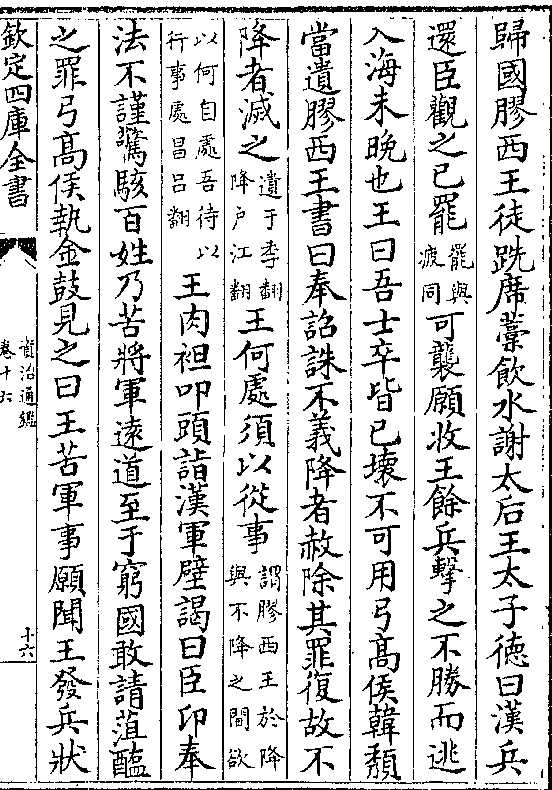 歸國膠西王徒跣席藁飲水謝太后王太子徳曰漢兵
還臣觀之已罷罷與疲同可襲願收王餘兵擊之不勝而逃
入海未晚也王曰吾士卒皆已壊不可用弓髙侯韓頽
當遺膠西王書曰奉詔誅不義降者赦除其罪復故不
降者滅之遺于季翻降户江翻王何處須以從事謂膠西王於降與不降之間欲
以何自處吾待以行事處昌吕翻王肉袒叩頭詣漢軍壁謁曰臣卬奉
法不謹驚駭百姓乃苦將軍逺道至于窮國敢請菹醢
之罪弓髙侯執金鼓見之曰王苦軍事願聞王發兵狀
欽定四庫全書
資治通鑑
卷十六
十六